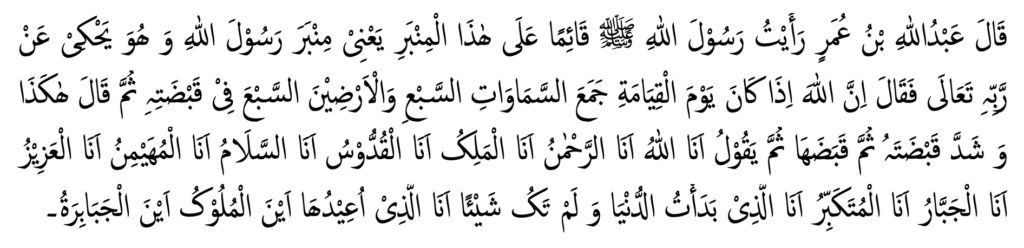 قَالَ عَبْدُاللهِ بْنُ عُمَرٍ رَأَيْتُ رَسُوْلَ اللهِ ﷺ قَائِمًا عَلَى هٰذَا الْمِنْبَرِ يَعْنِیْ مِنْبَرَ رَسُوْلَ اللهِ وَ هُوَ يَحْكِیْ عَنْ
رَّبِّہٖ تَعَالَى فَقَالَ اِنَّ اللهَ اِذَا كَانَ يَوْمَ الْقِيَامَةِ جَمَعَ السَّمَاوَاتِ السَّبْعِ وَالْاَرْضِيْنَ السَّبْعَ فِیْ قَبْضَتِہٖ ثُمَّ قَالَ هٰكَذَا
وَ شَدَّ قَبْضَتَہٗ ثُمَّ قَبَضَهَا ثُمَّ يَقُوْلُ اَنَا اللهُ اَنَا الرَّحْمٰنُ اَنَا الْمَلِکُ اَنَا الْقُدُّوْسُ اَنَا السَّلَامُ اَنَا الْمُهَيْمِنُ اَنَا الْعَزِيْزُ
اَنَا الْجَبَّارُ اَنَا الْمُتَكَبِّرُ اَنَا الَّذِیْ بَدَأْتُ الدُّنْيَا وَ لَمْ تَکُ شَيْئًا اَنَا الَّذِیْ اُعِيْدُهَا اَيْنَ الْمُلُوْکُ اَيْنَ الْجَبَابِرَةُ۔